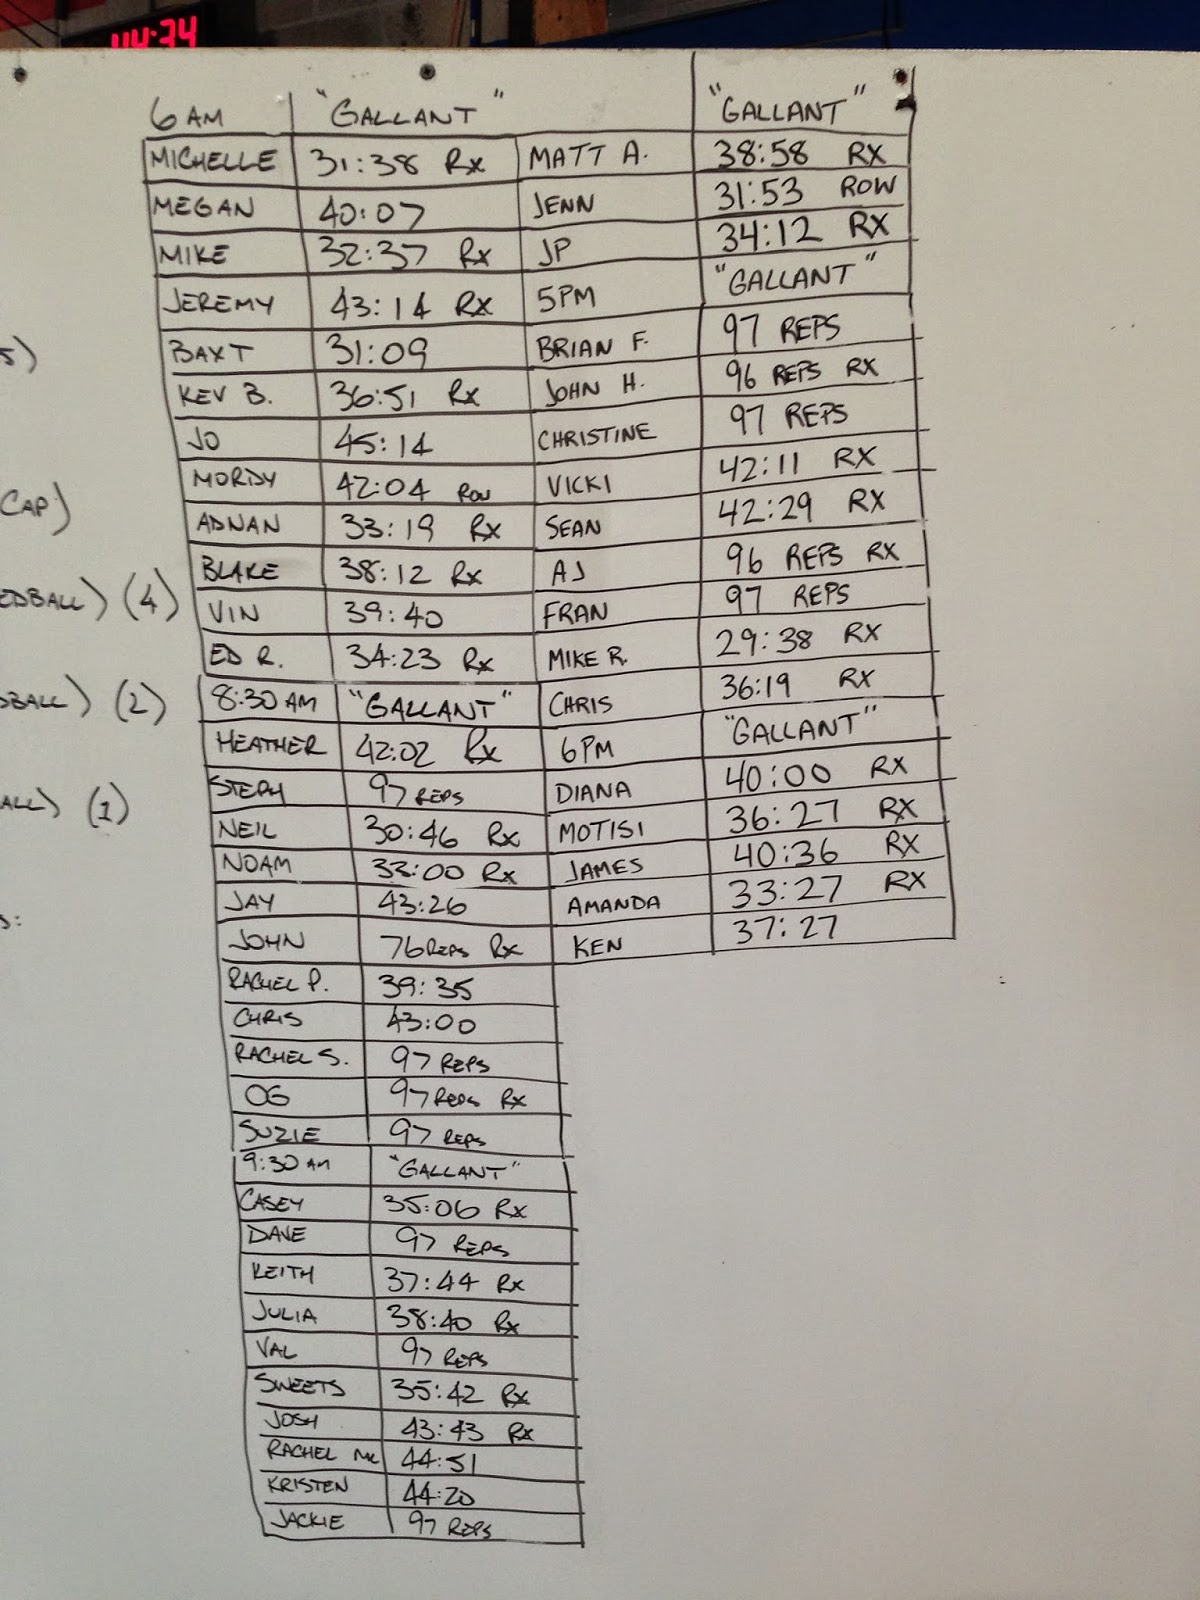 44:34
5)
CAP)
EDBALL) (4)
DBALL) (2)
ALL) (1)
S:
6AM "GALLANT"
MICHELLE 31:38 Rx
MEGAN 40:07
MIKE 32:37 Rx
JEREMY 43:14 Rx
BAXT 31:09
KEV B. 36:51 Rx
JO 45:14
MORDY 42:04 ROW
ADNAN 33:19 Rx
BLAKE 38:12 Rx
VIN 39:40
ED R. 34:23 Rx
8:30 AM "GALLANT"
HEATHER 42:02 Rx
STEPH 97 REPS
NEIL 30:46 Rx
NOAM 33:00 Rx
JAY 43:26
JOHN 76 REPS Rx
RACHEL P. 39:35
CHRIS 43:00
RACHEL S. 97 REPS
OG 97 REPS Rx
SUZIE 97 REPS
9:30 AM "GALLANT"
CASEY 35:06 Rx
DAVE 97 REPS
KEITH 37:44 Rx
JULIA 38:40 Rx
VAL 97 REPS
SWEETS 35:42 Rx
JOSH 43:43 Rx
RACHEL MC 44:51
KRISTEN 44:20
JACKIE 97 REPS
"GALLANT"
MATT A. 38:58 RX
JENN 31:53 ROW
JP 34:12 RX
5PM "GALLANT"
BRIAN F. 97 REPS
JOHN H. 96 REPS RX
CHRISTINE 97 REPS
VICKI 42:11 RX
SEAN 42:29 RX
AJ 96 REPS RX
FRAN 97 REPS
MIKE R. 29:38 RX
CHRIS 36:19 RX
6PM "GALLANT"
DIANA 40:00 RX
MOTISI 36:27 RX
JAMES 40:36 RX
AMANDA 33:27 RX
KEN 37:27